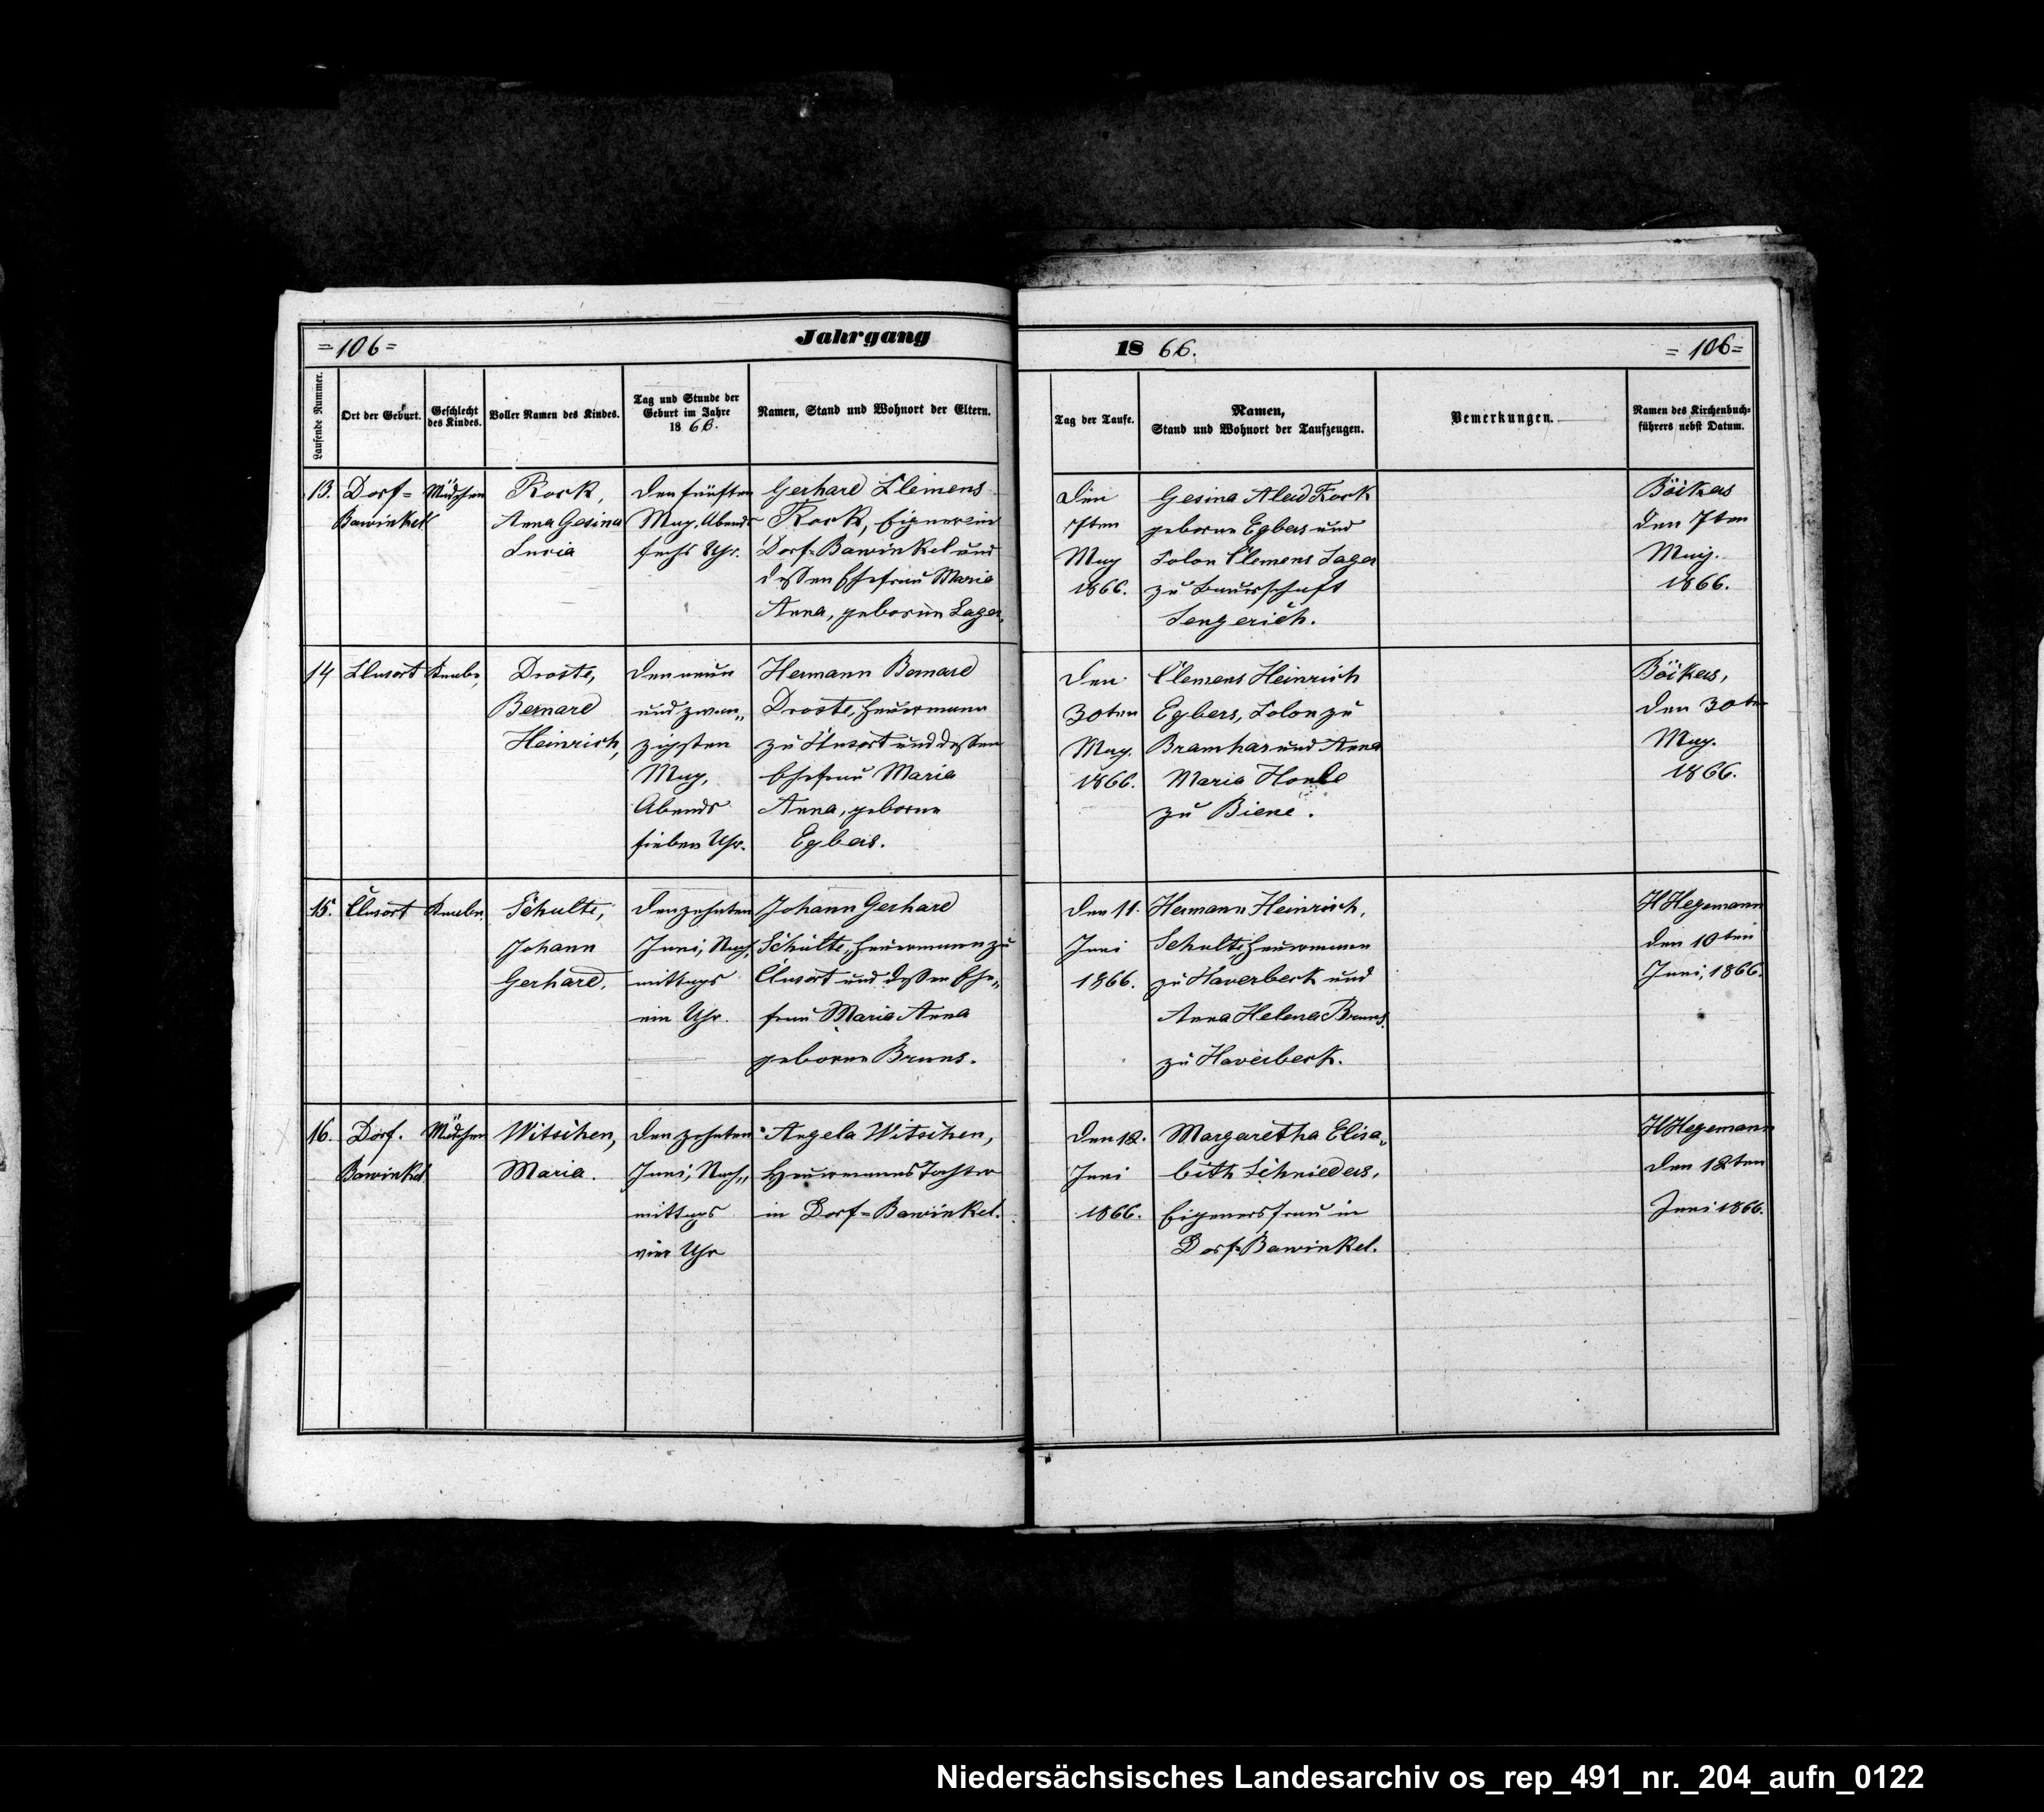 =106=
Jahrgang
18 66.
=106=
Laufende Nummer.
Ort der Geburt.
Geschlecht
des Kindes.
Voller Namen des Kindes.
Tag und Stunde der
Geburt im Jahre
18 66.
Namen, Stand und Wohnort der Eltern.
Tag der Taufe.
Namen,
Stand und Wohnort der Taufzeugen.
Bemerkungen.
Namen des Kirchenbuch-
führers nebst Datum.
13.
Dorf=
Bawinkel
Mädchen
Rock,
Anna Gesina
Lucia
den fünften
May, Abends
sechs Uhr.
Gerhard Clemens
Rock, Eigner in
Dorf=Bawinkel und
dessen Ehefrau Maria
Anna, geborne Lager.
Den
7ten
May
1866.
Gesina Aleid Rock
geborne Egbers und
Colon Clemens Lager
zu Bauerschaft
Lengerich.
Böikers
den 7ten
May.
1866.
14
Clusort
Knabe,
Droste,
Bernard
Heinrich,
den neun
und zwan„
zigsten
May,
Abends
sieben Uhr.
Hermann Bernard
Droste, Heuermann
zu Clusort und dessen
Ehefrau Maria
Anna, geborne
Egbers.
Den
30ten
May.
1866.
Clemens Heinrich
Egbers, Colon zu
Bramhar und Anna
Maria
zu Biene.
Böikers,
den 30ten
May.
1866.
15.
Clusort
Knabe.
Schulte,
Johann
Gerhard.
den zehnten
Juni, Nach„
mittags
ein Uhr.
Johann Gerhard
Schulte, Heuermann zu
Clusort und dessen Ehe„
frau Maria Anna
geborne Bruns.
Den 11.
Juni
1866.
Hermann Heinrich,
Schulte, Heuermann
zu Haverbeck und
Anna Helena Bruns
zu Haverbeck.
HHegemann
den 10ten
Juni, 1866.
16.
Dorf.
Bawinkel
Mädchen
Witschen,
Maria.
den zehnten
Juni, Nach„
mittags
vier Uhr
Angela Witschen,
Heuermanns Tochter
in Dorf=Bawinkel.
Den 12.
Juni
1866.
Margaretha Elisa„
beth Schnieders,
Eigeners Frau in
Dorf=Bawinkel.
HHegemann
den 12ten
Juni 1866.
Niedersächsisches Landesarchiv os_rep_491_nr._204_aufn_0122